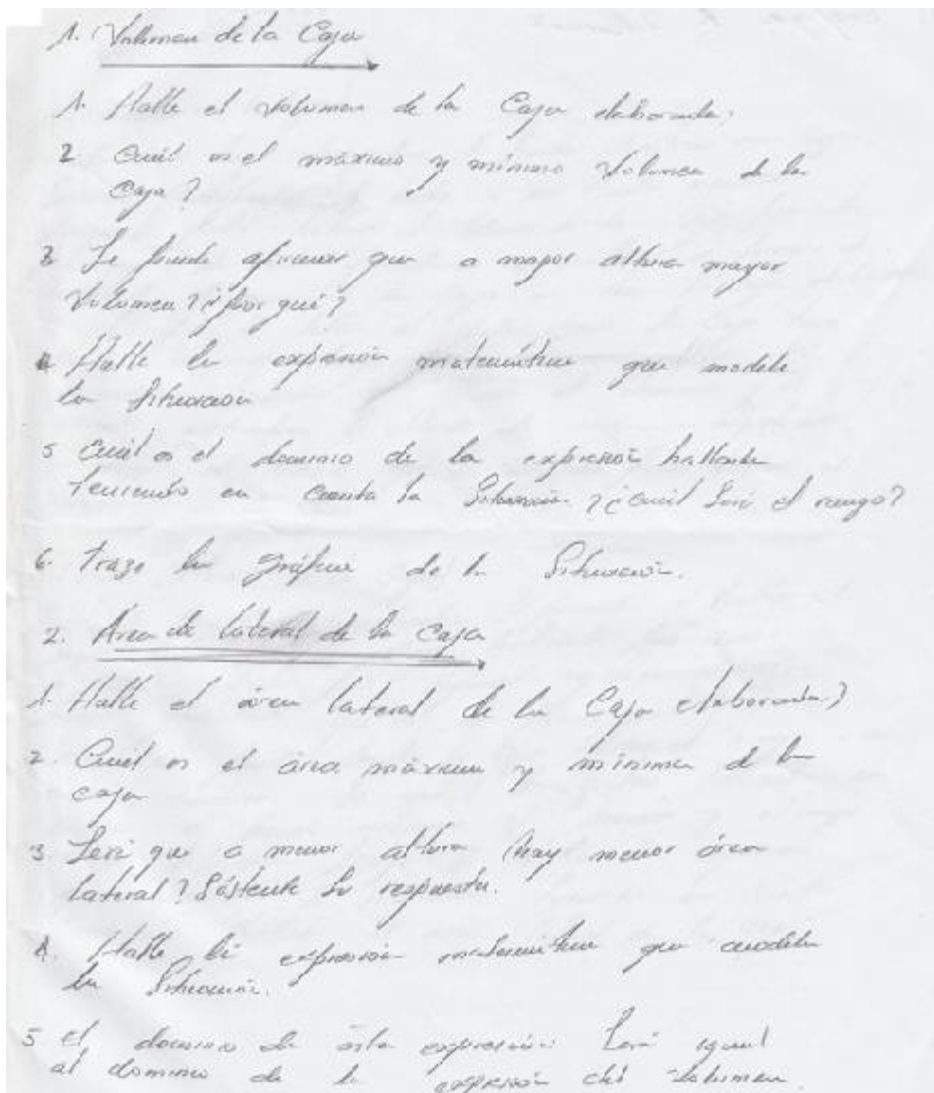 1. Volumen de la Caja
1. Halle el volumen de la Caja elaborada.
2 Cuál es el máximo y mínimo Volumen de la
Caja?
3 Se puede afirmar que a mayor altura mayor
Volumen? ¿por qué?
4 Halle la expresión matemática que modele
la Situación
5 Cuál es el dominio de la expresión hallada
teniendo en cuenta la Situación? ¿Cuál será el rango?
6. Trazo la gráfica de la Situación.
2. Área de lateral de la Caja
1. Halle el área lateral de la Caja elaborada?
2. Cuál es el área máxima y mínima de la
caja
3 Será que a menor altura hay menor área
lateral? Sustente su respuesta.
4. Halle la expresión matemática que modela
la Situación.
5 el dominio de esta expresión será igual
al dominio de la expresión del volumen.